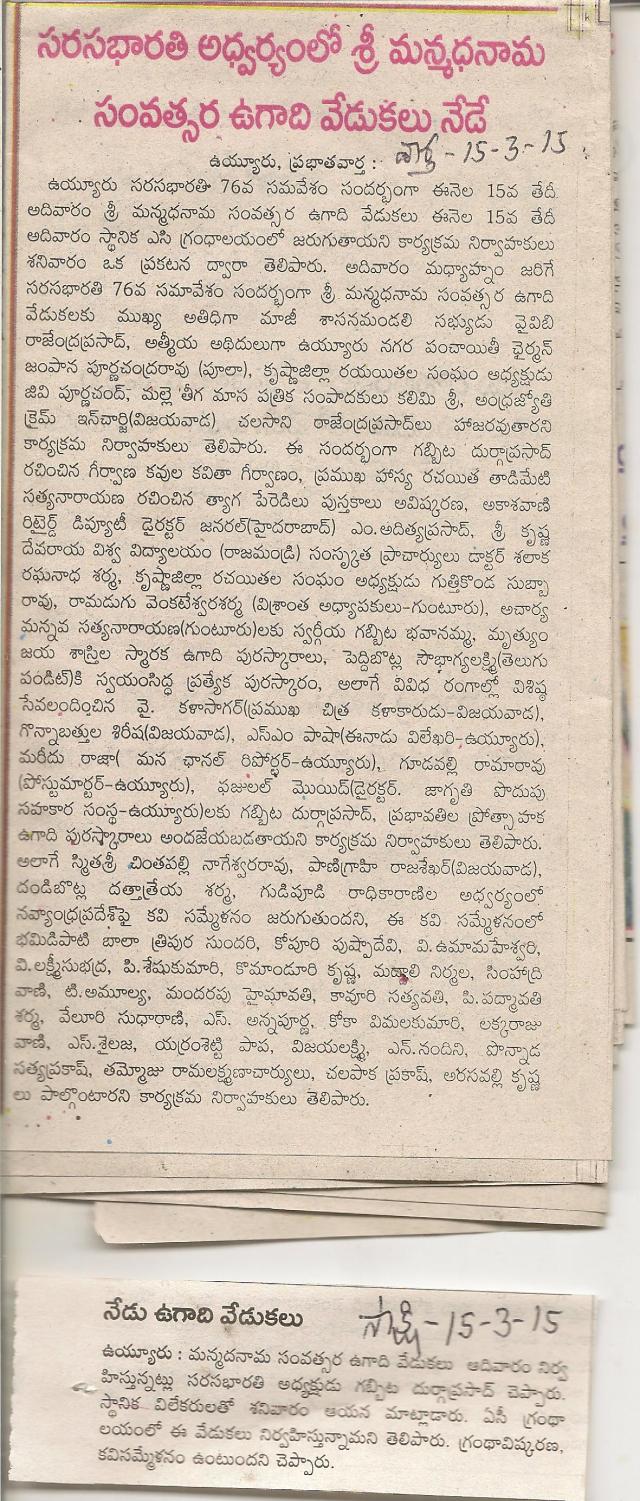 సరసభారతి అధ్వర్యంలో శ్రీ మన్మధనామ
సంవత్సర ఉగాది వేడుకలు నేడే
ఉయ్యూరు, ప్రభాతవార్త : వార్త - 15-3-15
ఉయ్యూరు సరసభారతి 76వ సమవేశం సందర్భంగా ఈనెల 15వ తేదీ
అదివారం శ్రీ మన్మధనామ సంవత్సర ఉగాది వేడుకలు ఈనెల 15వ తేదీ
అదివారం స్థానిక ఎసి గ్రంధాలయంలో జరుగుతాయని కార్యక్రమ నిర్వాహకులు
శనివారం ఒక ప్రకటన ద్వారా తెలిపారు. అదివారం మధ్యాహ్నం జరిగే
సరసభారతి 76వ సమావేశం సందర్భంగా శ్రీ మన్మధనామ సంవత్సర ఉగాది
వేడుకలకు ముఖ్య అతిధిగా మాజీ శాసనమండలి సభ్యుడు వైవిబి
రాజేంద్రప్రసాద్, అత్మీయ అథిదులుగా ఉయ్యూరు నగర పంచాయితీ ఛైర్మన్
జంపాన పూర్ణచంద్రరావు (పూలా), కృష్ణాజిల్లా రయయితల సంఘం అధ్యక్షుడు
జివి పూర్ణచంద్, మల్లె తీగ మాస పత్రిక సంపాదకులు కలిమి శ్రీ, అంధ్రజ్యోతి
క్రైమ్ ఇన్‌చార్జి(విజయవాడ) చలసాని రాజేంద్రప్రసాద్‌లు హాజరవుతారని
కార్యక్రమ నిర్వాహకులు తెలిపారు. ఈ సందర్భంగా గబ్బిట దుర్గాప్రసాద్
రచించిన గీర్వాణ కవుల కవితా గీర్వాణం, ప్రముఖ హాస్య రచయిత తాడిమేటి
సత్యనారాయణ రచించిన త్యాగ పేరెడిలు పుస్తకాలు అవిష్కరణ, అకాశవాణి
రిటైర్డ్ డిప్యూటీ డైరక్టర్ జనరల్(హైదరాబాద్) ఎం.అదిత్యప్రసాద్, శ్రీ కృష్ణ
దేవరాయ విశ్వ విద్యాలయం (రాజమండ్రి) సంస్కృత ప్రాచార్యులు డాక్టర్ శలాక
రఘనాధ శర్మ, కృష్ణాజిల్లా రచయితల సంఘం అధ్యక్షుడు గుత్తికొండ సుబ్బా
రావు, రామడుగు వెంకటేశ్వరశర్మ (విశ్రాంత అధ్యాపకులు-గుంటూరు), అచార్య
మన్నవ సత్యనారాయణ(గుంటూరు)లకు స్వర్గీయ గబ్బిట భవానమ్మ, మృత్యుం
జయ శాస్త్రిల స్మారక ఉగాది పురస్కారాలు, పెద్దిబొట్ల సౌభాగ్యలక్ష్మి(తెలుగు
పండిట్)కి స్వయంసిద్ధ ప్రత్యేక పురస్కారం, అలాగే వివిధ రంగాల్లో విశిష్ఠ
సేవలందించిన వై. కళాసాగర్(ప్రముఖ చిత్ర కళాకారుడు-విజయవాడ),
గొన్నాబత్తుల శిరీష(విజయవాడ), ఎస్ఎం పాషా(ఈనాడు విలేఖరి-ఉయ్యూరు),
మరీదు రాజా( మన ఛానల్ రిపోర్టర్-ఉయ్యూరు), గూడవల్లి రామారావు
(పోస్టుమార్టర్-ఉయ్యూరు), ఫజులల్ మొయిద్(డైరక్టర్. జాగృతి పొదుపు
సహకార సంస్థ-ఉయ్యూరు)లకు గబ్బిట దుర్గాప్రసాద్, ప్రభావతిల ప్రోత్సాహక
ఉగాది పురస్కారాలు అందజేయబడతాయని కార్యక్రమ నిర్వాహకులు తెలిపారు.
అలాగే స్మితశ్రీ చింతపల్లి నాగేశ్వరరావు, పాణిగ్రాహి రాజశేఖర్(విజయవాడ),
దండిబొట్ల దత్తాత్రేయ శర్మ, గుడివూడి రాధికారాణిల అధ్వర్యంలో
నవ్యాంధ్రప్రదేశ్‌పై కవి సమ్మేళనం జరుగుతుందని, ఈ కవి సమ్మేళనంలో
భమిడిపాటి బాలా త్రిపుర సుందరి, కోపూరి పుష్పాదేవి, వి.ఉమామహేశ్వరి,
వి.లక్ష్మీసుభద్ర, పి.శేషుకుమారి, కొమాండూరి కృష్ణ, మణ్ణాలి నిర్మల, సింహాద్రి
వాణి, టి.అమూల్య, మందరపు హైమావతి, కావూరి సత్యవతి, పి.పద్మావతి
శర్మ, వేలూరి సుధారాణి, ఎస్. అన్నపూర్ణ, కోకా విమలకుమారి, లక్కరాజు
వాణి, ఎస్.శైలజ, యర్రంశెట్టి పాప, విజయలక్ష్మి, ఎన్.నందిని, పొన్నాడ
సత్యప్రకాష్, తమ్మోజు రామలక్ష్మణాచార్యులు, చలపాక ప్రకాష్, అరసవల్లి కృష్ణ
లు పాల్గొంటారని కార్యక్రమ నిర్వాహకులు తెలిపారు.
నేడు ఉగాది వేడుకలు సాక్షి - 15-3-15
ఉయ్యూరు : మన్మదనామ సంవత్సర ఉగాది వేడుకలు ఆదివారం నిర్వ
హిస్తున్నట్లు సరసభారతి అధ్యక్షుడు గబ్బిట దుర్గాప్రసాద్ చెప్పారు.
స్థానిక విలేకరులతో శనివారం ఆయన మాట్లాడారు. ఏసీ గ్రంథా
లయంలో ఈ వేడుకలు నిర్వహిస్తున్నామని తెలిపారు. గ్రంథావిష్కరణ,
కవిసమ్మేళనం ఉంటుందని చెప్పారు.